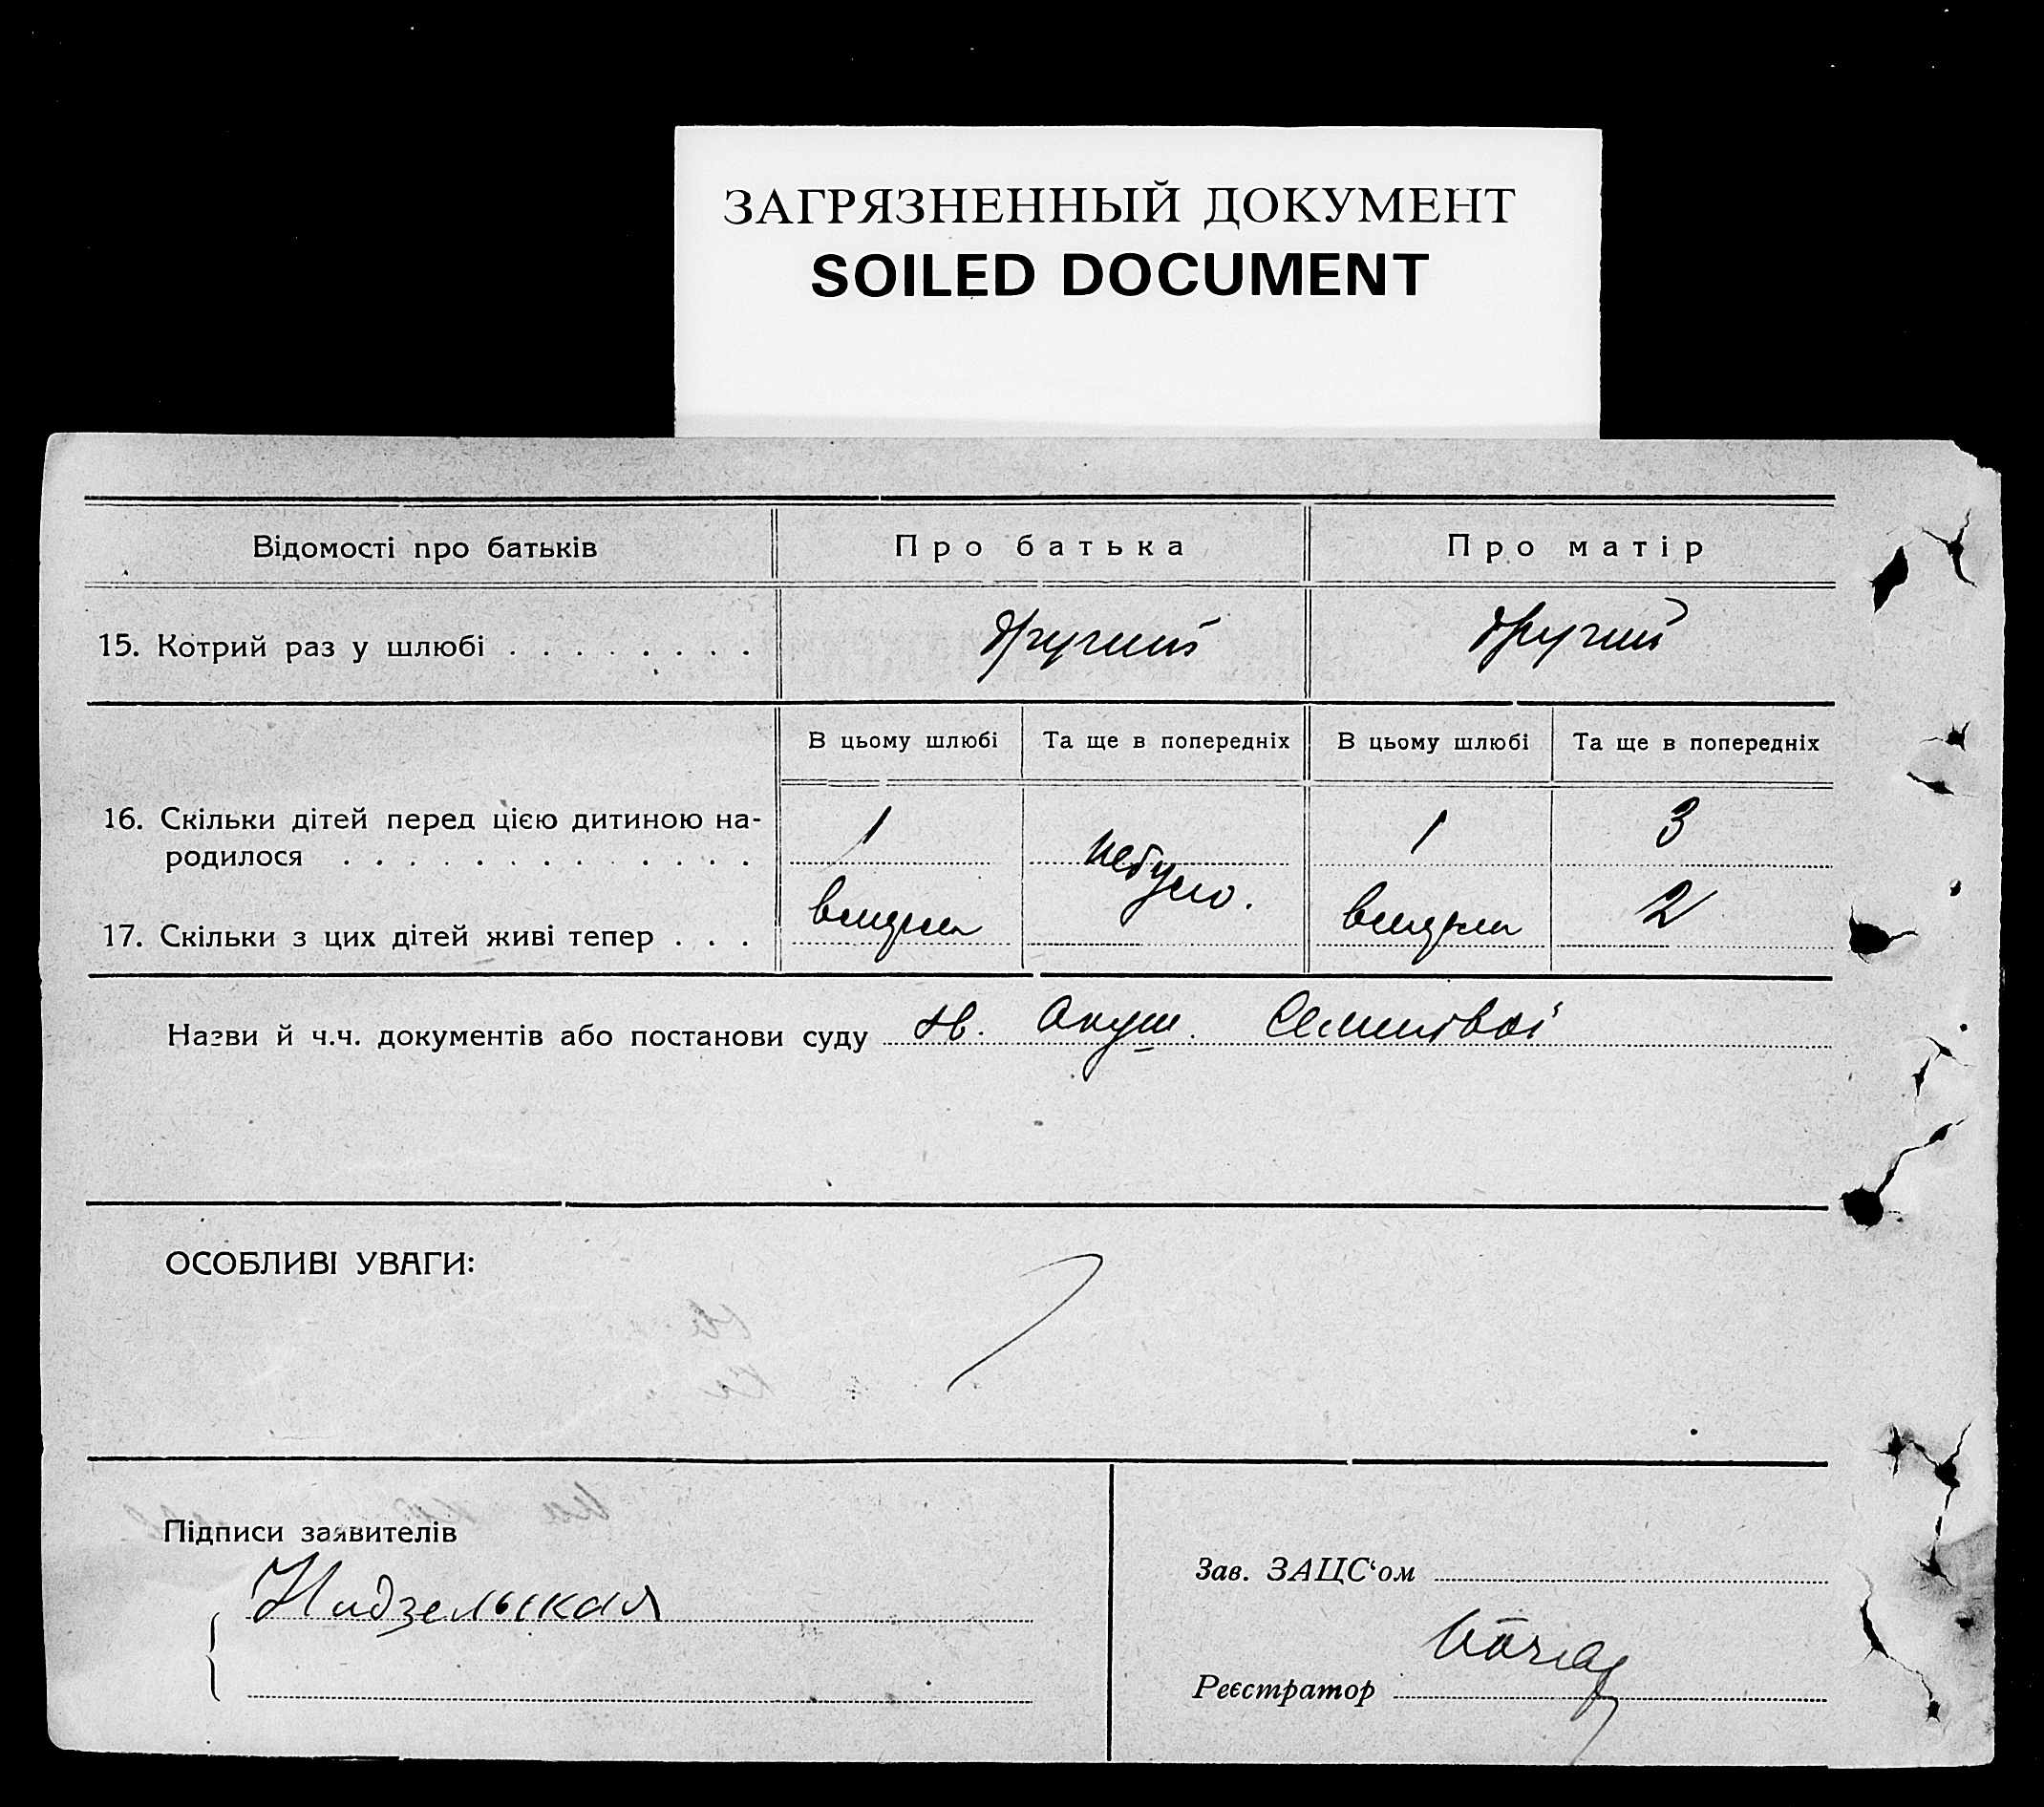 ЗАГРЯЗНЕННЫЙ ДОКУМЕНТ
SOILED DOCUMENT
Відомості про батьків Про батька Про матір
15. Котрий раз у шлюбі . . . . . . . . другий другий
В цьому шлюбі Та ще в попередніх В цьому шлюбі Та ще в попередніх
16. Скільки дітей перед цією дитиною на-
родилося . . . . . . . . . . . . . 1 небуло. 1 3
17. Скільки з цих дітей живі тепер . . . вмерла вмерла 2
Назви й ч.ч. документів або постанови суду Акуш.
ОСОБЛИВІ УВАГИ:
Підписи заявителів
Зав. ЗАЦС'ом
Реєстратор